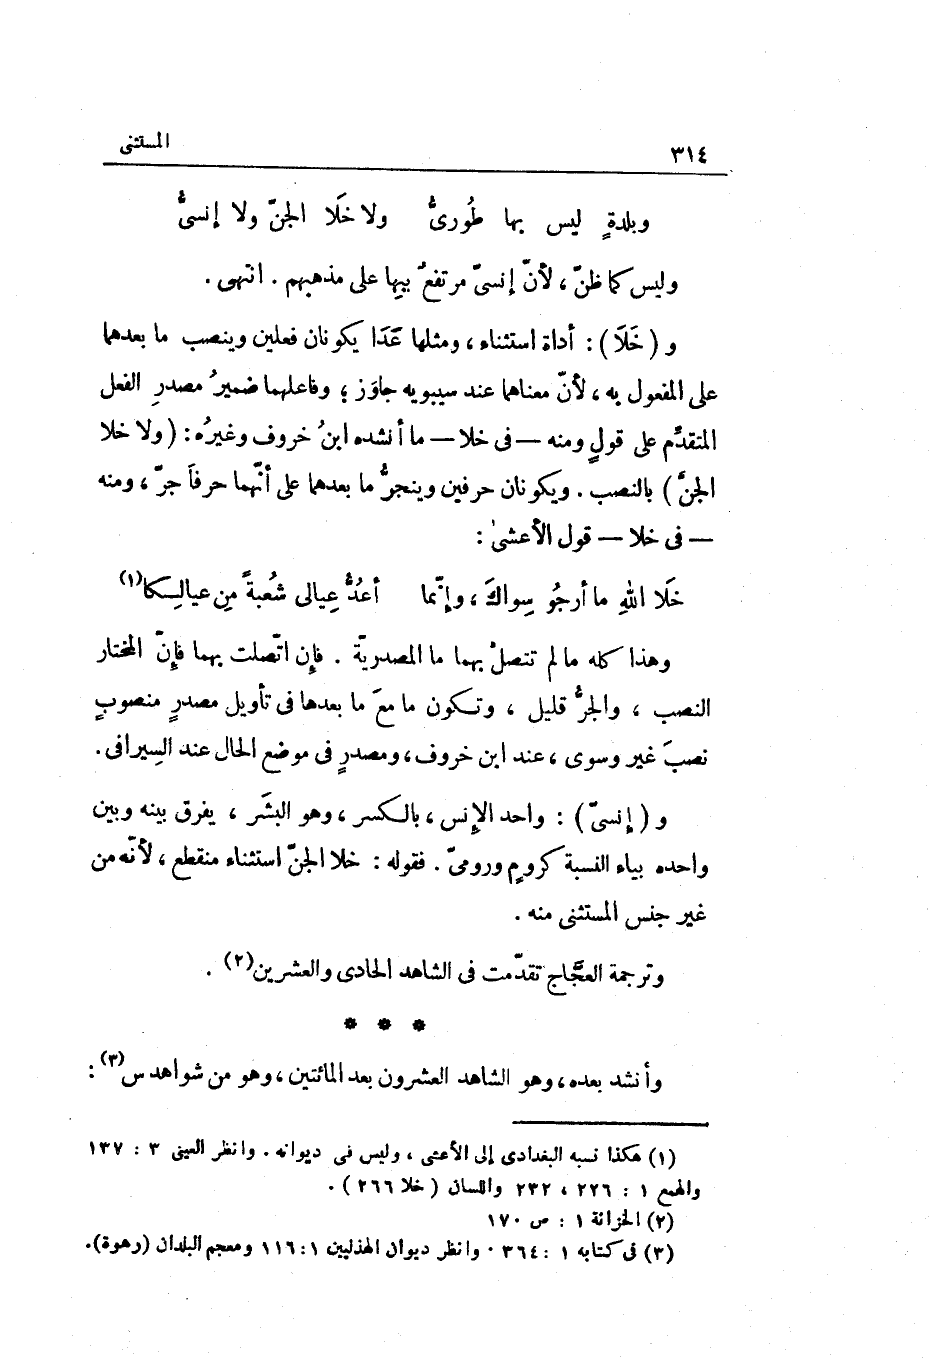 ٣١٤ المستثنى
وبلدةٍ ليس بها طُورىُّ ولا خَلَا الجنّ ولا إنسىُّ
وليس كما ظنّ ، لأنّ إنسىّ مرتفعٌ ببِها على مذهبهم . انتهى .
و ( خَلَا ) : أداة استثناء ، ومثلها عَدَا يكونان فعلين وينصب ما بعدهما
على المفعول به ، لأنّ معناهما عند سيبويه جاوَز ؛ وفاعلهما ضميرُ مصدرِ الفعل
المتقدِّم على قولٍ ومنه — فى خلا — ما أنشده ابنُ خروف وغيرُه : ( ولا خلا
الجنَّ ) بالنصب . ويكونان حرفين وينجرُّ ما بعدهما على أنّهما حرفَا جرّ ، ومنه
— فى خلا — قول الأعشىٰ :
خَلَا اللهِ ما أرجُو سِواكَ ، وإنّما أعدُّ عِيالى شُعبةً مِن عيالِكا(١)
وهذا كله ما لم تتصلْ بهما ما المصدريّة . فإن اتّصلت بهما فإنّ المختار
النصب ، والجرُّ قليل ، وتكون ما معَ ما بعدها فى تأويل مصدرٍ منصوبٍ
نصبَ غير وسوى ، عند ابن خروف ، ومصدرٍ فى موضع الحال عند السِيرافى .
و ( إنسىّ ) : واحد الإنس ، بالكسر ، وهو البشَر ، يفرق بينه وبين
واحده بياء النسبة كرومٍ ورومىّ . فقوله : خلا الجنّ استثناء منقطع ، لأنّه من
غير جنس المستثنى منه .
وترجمة العجَّاج تقدّمت فى الشاهد الحادى والعشرين(٢) .
* * *
وأنشد بعده ، وهو الشاهد العشرون بعد المائتين ، وهو من شواهد س(٣) :
(١) هكذا نسبه البغدادى إلى الأعشى ، وليس فى ديوانه . وانظر العينى ٣ : ١٣٧
والهمع ١ : ٢٢٦ ، ٢٣٢ واللسان ( خلا ٢٦٦ ) .
(٢) الخزانة ١ : ص ١٧٠
(٣) فى كتابه ١ : ٣٦٤ . وانظر ديوان الهذليين ١ : ١١٦ ومعجم البلدان (رهوة).